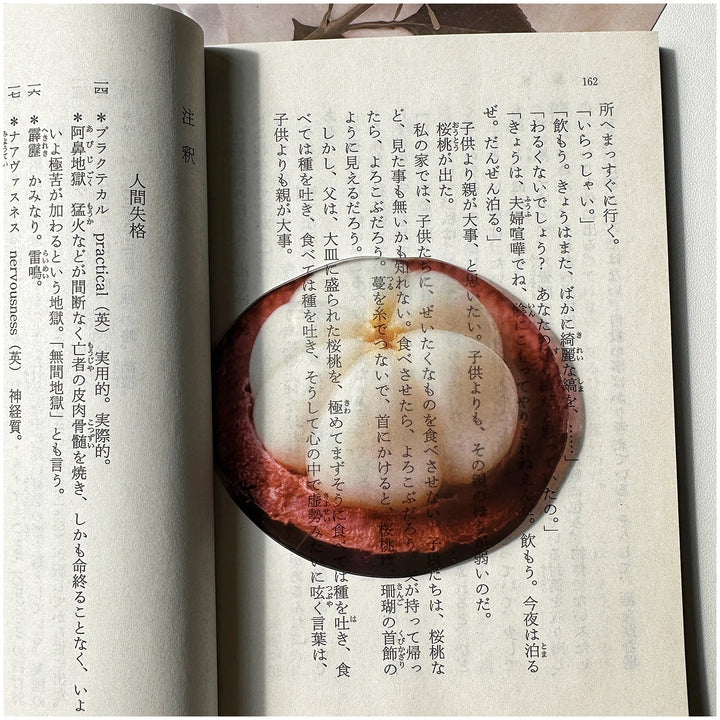 162
所へまっすぐに行く。
「いらっしゃい。」
「飲もう。きょうはまた、ばかに綺麗な縞を、……」
「わるくないでしょう? あなたの っていたの。」
「きょうは、夫婦喧嘩でね、陰にこもってやりきれねえんだ。飲もう。今夜は泊る
ぜ。だんぜん泊る。」
子供より親が大事、と思いたい。子供よりも、その親のほうが弱いのだ。
桜桃が出た。
私の家では、子供たちに、ぜいたくなものを食べさせない。子供たちは、桜桃な
ど、見た事も無いかも知れない。食べさせたら、よろこぶだろう。父が持って帰っ
たら、よろこぶだろう。蔓を糸でつないで、首にかけると、桜桃は、珊瑚の首飾の
ように見えるだろう。
しかし、父は、大皿に盛られた桜桃を、極めてまずそうに食べては種を吐き、食
べては種を吐き、食べては種を吐き、そうして心の中で虚勢みたいに呟く言葉は、
子供よりも親が大事。
注釈
人間失格
一四 *プラクテカル practical（英）実用的。実際的。
*阿鼻地獄 猛火などが間断なく亡者の皮肉骨髄を焼き、しかも命終ることなく、いよ
いよ極苦が加わるという地獄。「無間地獄」とも言う。
一六 *霹靂 かみなり。雷鳴。
一七 *ナアヴァスネス nervousness（英）神経質。